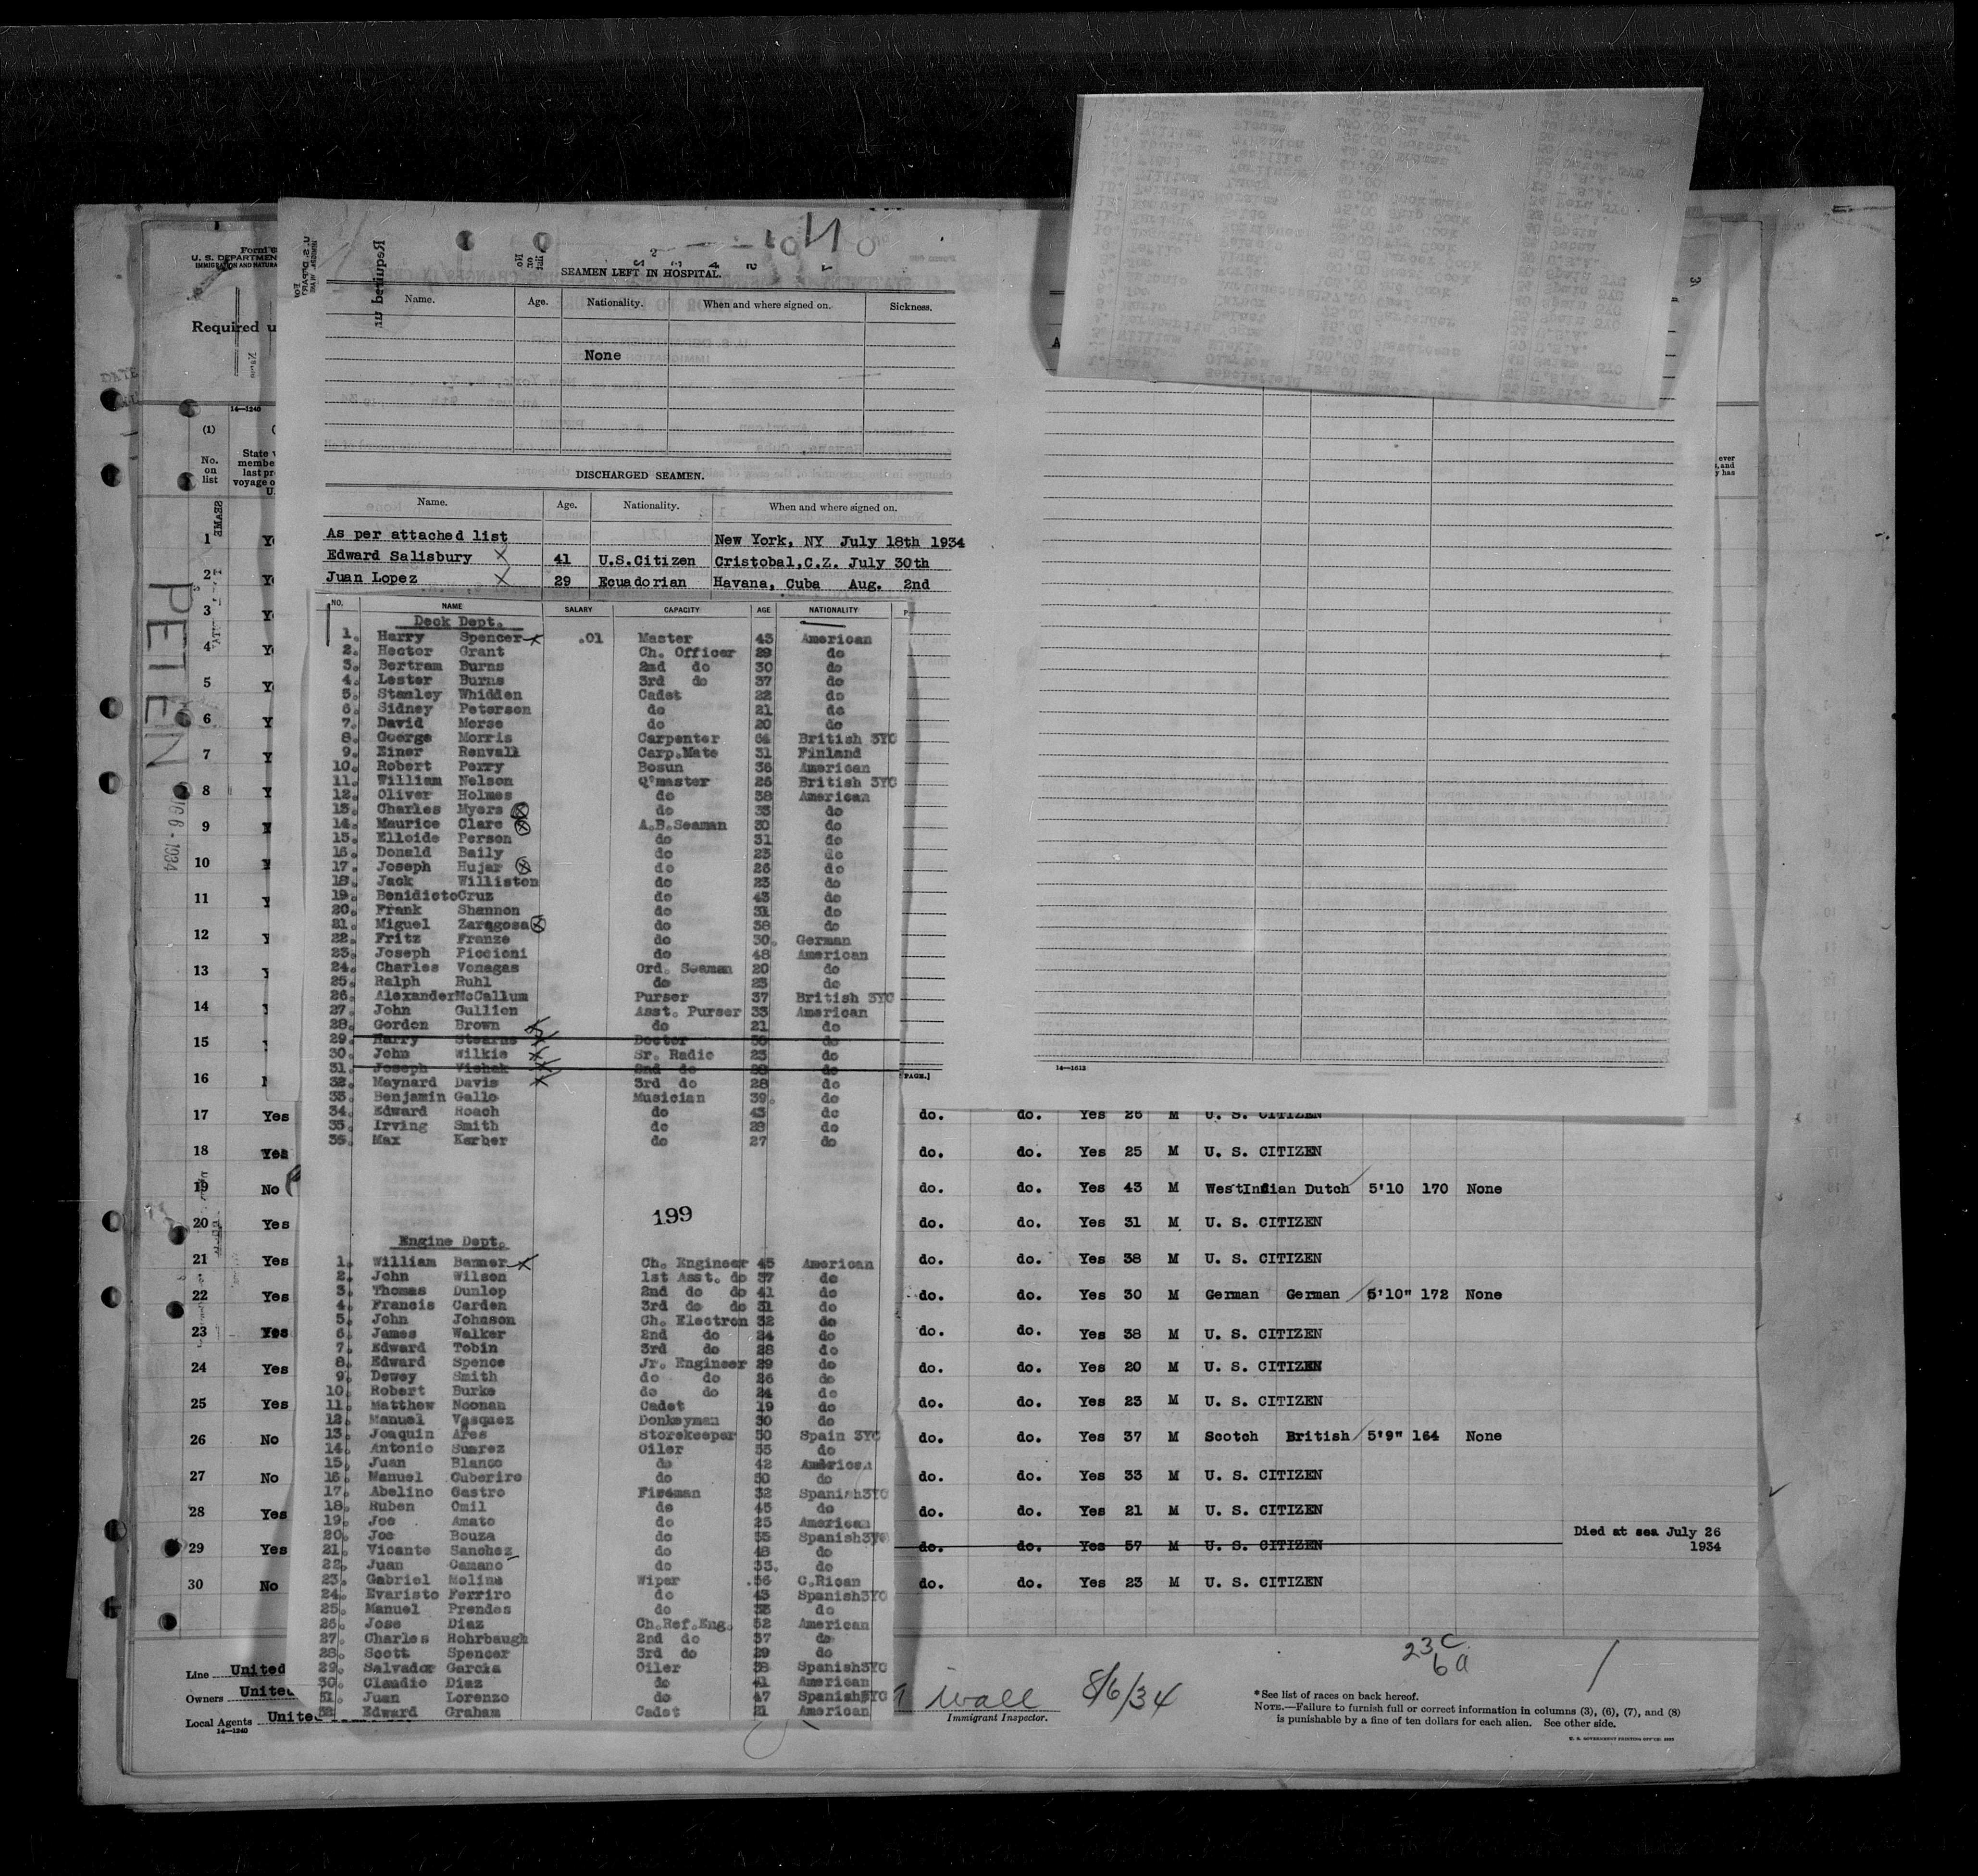 SEAMEN LEFT IN HOSPITAL.
Name. Age. Nationality. When and where signed on. Sickness.
None
DISCHARGED SEAMEN.
Name. Age. Nationality. When and where signed on.
As per attached list New York, NY July 18th 1934
Edward Salisbury 41 U.S.Citizen Cristobal,C.Z. July 30th
Juan Lopez 29 Ecuadorian Havana, Cuba Aug. 2nd
NO. NAME SALARY CAPACITY AGE NATIONALITY
Deck Dept.
1. Harry Spencer .01 Master 43 American
2. Hector Grant Ch. Officer 29 do
3. Bertram Burns 2nd do 30 do
4. Lester Burns 3rd do 37 do
5. Stanley Whidden Cadet 22 do
6. Sidney Peterson do 21 do
7. David Morse do 20 do
8. George Morris Carpenter 64 British 3YC
9. Einer Renvall Carp.Mate 31 Finland
10. Robert Perry Bosun 36 American
11. William Nelson Q'master 26 British 3YC
12. Oliver Holmes do 38 American
13. Charles Myers do 33 do
14. Maurice Clare A.B.Seaman 30 do
15. Elloide Person do 31 do
16. Donald Baily do 23 do
17. Joseph Hujar do 26 do
18. Jack Williston do 23 do
19. BenidictoCruz do 43 do
20. Frank Shannon do 31 do
21. Miguel Zaragosa do 38 do
22. Fritz Franze do 30. German
23. Joseph Piccioni do 48 American
24. Charles Vonagas Ord. Seaman 20 do
25. Ralph Ruhl do 23 do
26. AlexanderMcCallum Purser 37 British 3YC
27. John Gullion Asst. Purser 33 American
28. Gordon Brown do 21 do
29. Harry Stearns Doctor do
30. John Wilkie Sr. Radio 23 do
31. Joseph 2nd do do
32. Maynard Davis 3rd do 28 do
33. Benjamin Gallo Musician 39. do
34. Edward Roach do 43 do
35. Irving Smith do 28 do
36. Max Karber do 27 do
199
Engine Dept.
1. William Banner Ch. Engineer 45 American
2. John Wilson 1st Asst. do 37 do
3. Thomas Dunlop 2nd do do 41 do
4. Francis Carden 3rd do do 31 do
5. John Johnson Ch. Electron 32 do
6. James Walker 2nd do 24 do
7. Edward Tobin 3rd do 28 do
8. Edward Spence Jr. Engineer 29 do
9. Dewey Smith do do 26 do
10. Robert Burke do do 24 do
11. Matthew Noonan Cadet 19 do
12. Manuel Vasquez Donkeyman 30 do
13. Joaquin Ares Storekeeper 50 Spain 3YC
14. Antonio Suarez Oiler 35 do
15. Juan Blanco do 42 American
16. Manuel Cuberiro do 50 do
17. Abelino Castro Fireman 32 Spanish3YC
18. Ruben Omil do 45 do
19. Joe Amato do 25 American
20. Joe Bouza do 35 Spanish3YC
21. Vicante Sanchez do 48 do
22. Juan Camano do 33. do
23. Gabriel Molina Wiper .56 C.Rican
24. Evaristo Ferriro do 43 Spanish3YC
25. Manuel Prendes do do
26. Jose Diaz Ch.Ref.Eng. 52 American
27. Charles Rohrbaugh 2nd do 37 do
28. Scott Spencer 3rd do 29 do
29. Salvador Garcia Oiler 38 Spanish3YC
30. Claudio Diaz do 41 American
31. Juan Lorenzo do 47 Spanish3YC
32. Edward Graham Cadet 21 American
Form
U. S. DEPARTMENT
Required u
14—1240
(1)
No. on list
PETEN
1
2
3
4
5
6
7
8
9
10
11
12
13
14
15
16
PAGE.]
14—1613
17 Yes do. do. Yes 26 M U. S. CITIZEN
18 Yes do. do. Yes 25 M U. S. CITIZEN
19 No do. do. Yes 43 M WestIndian Dutch 5'10 170 None
20 Yes do. do. Yes 31 M U. S. CITIZEN
21 Yes do. do. Yes 38 M U. S. CITIZEN
22 Yes do. do. Yes 30 M German German 5'10" 172 None
23 Yes do. do. Yes 38 M U. S. CITIZEN
24 Yes do. do. Yes 20 M U. S. CITIZEN
25 Yes do. do. Yes 23 M U. S. CITIZEN
26 No do. do. Yes 37 M Scotch British 5'9" 164 None
27 No do. do. Yes 33 M U. S. CITIZEN
28 Yes do. do. Yes 21 M U. S. CITIZEN
29 Yes do. do. Yes 57 M U. S. CITIZEN Died at sea July 26 1934
30 No do. do. Yes 23 M U. S. CITIZEN
23 C
6 a
Line United
Owners United
Local Agents United
14—1240
Wall 8/6/34
Immigrant Inspector.
*See list of races on back hereof.
NOTE.—Failure to furnish full or correct information in columns (3), (6), (7), and (8)
is punishable by a fine of ten dollars for each alien. See other side.